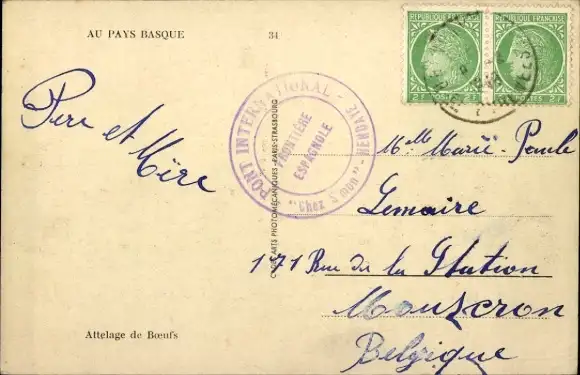 AU PAYS BASQUE
34
REPUBLIQUE FRANÇAISE
REPUBLIQUE FRANÇAISE
2F POSTES
POSTES 2F
PONT INTERNATIONAL - HENDAYE
FRONTIÈRE
ESPAGNOLE
"Chez Simon"
PHOTOMÉCANIQUES - PARIS-STRASBOURG
Père et
Mère
Melle Marie-Paule
Lemaire
171 Rue de la Station
Mouscron
Belgique
Attelage de Bœufs